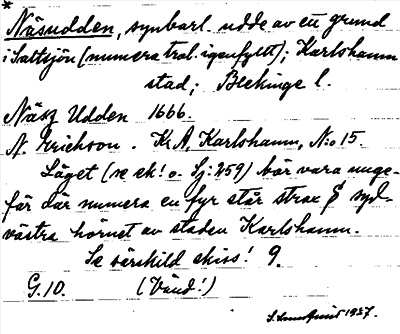 *
Näsudden, synbarl. udde av ett grund
i Saltsjön (numera trol. igenfyllt); Karlshamn
stad; Blekinge l.
Näsz Udden 1666.
N. Erichson. Kr A, Karlshamn, N:o 15.
Läget (se ek! o. Sj: 259) bör vara unge-
fär där numera en fyr står strax syd-
västra hörnet av staden Karlshamn.
Se särskild skiss! 9.
G.10. (Vänd!)
1927.